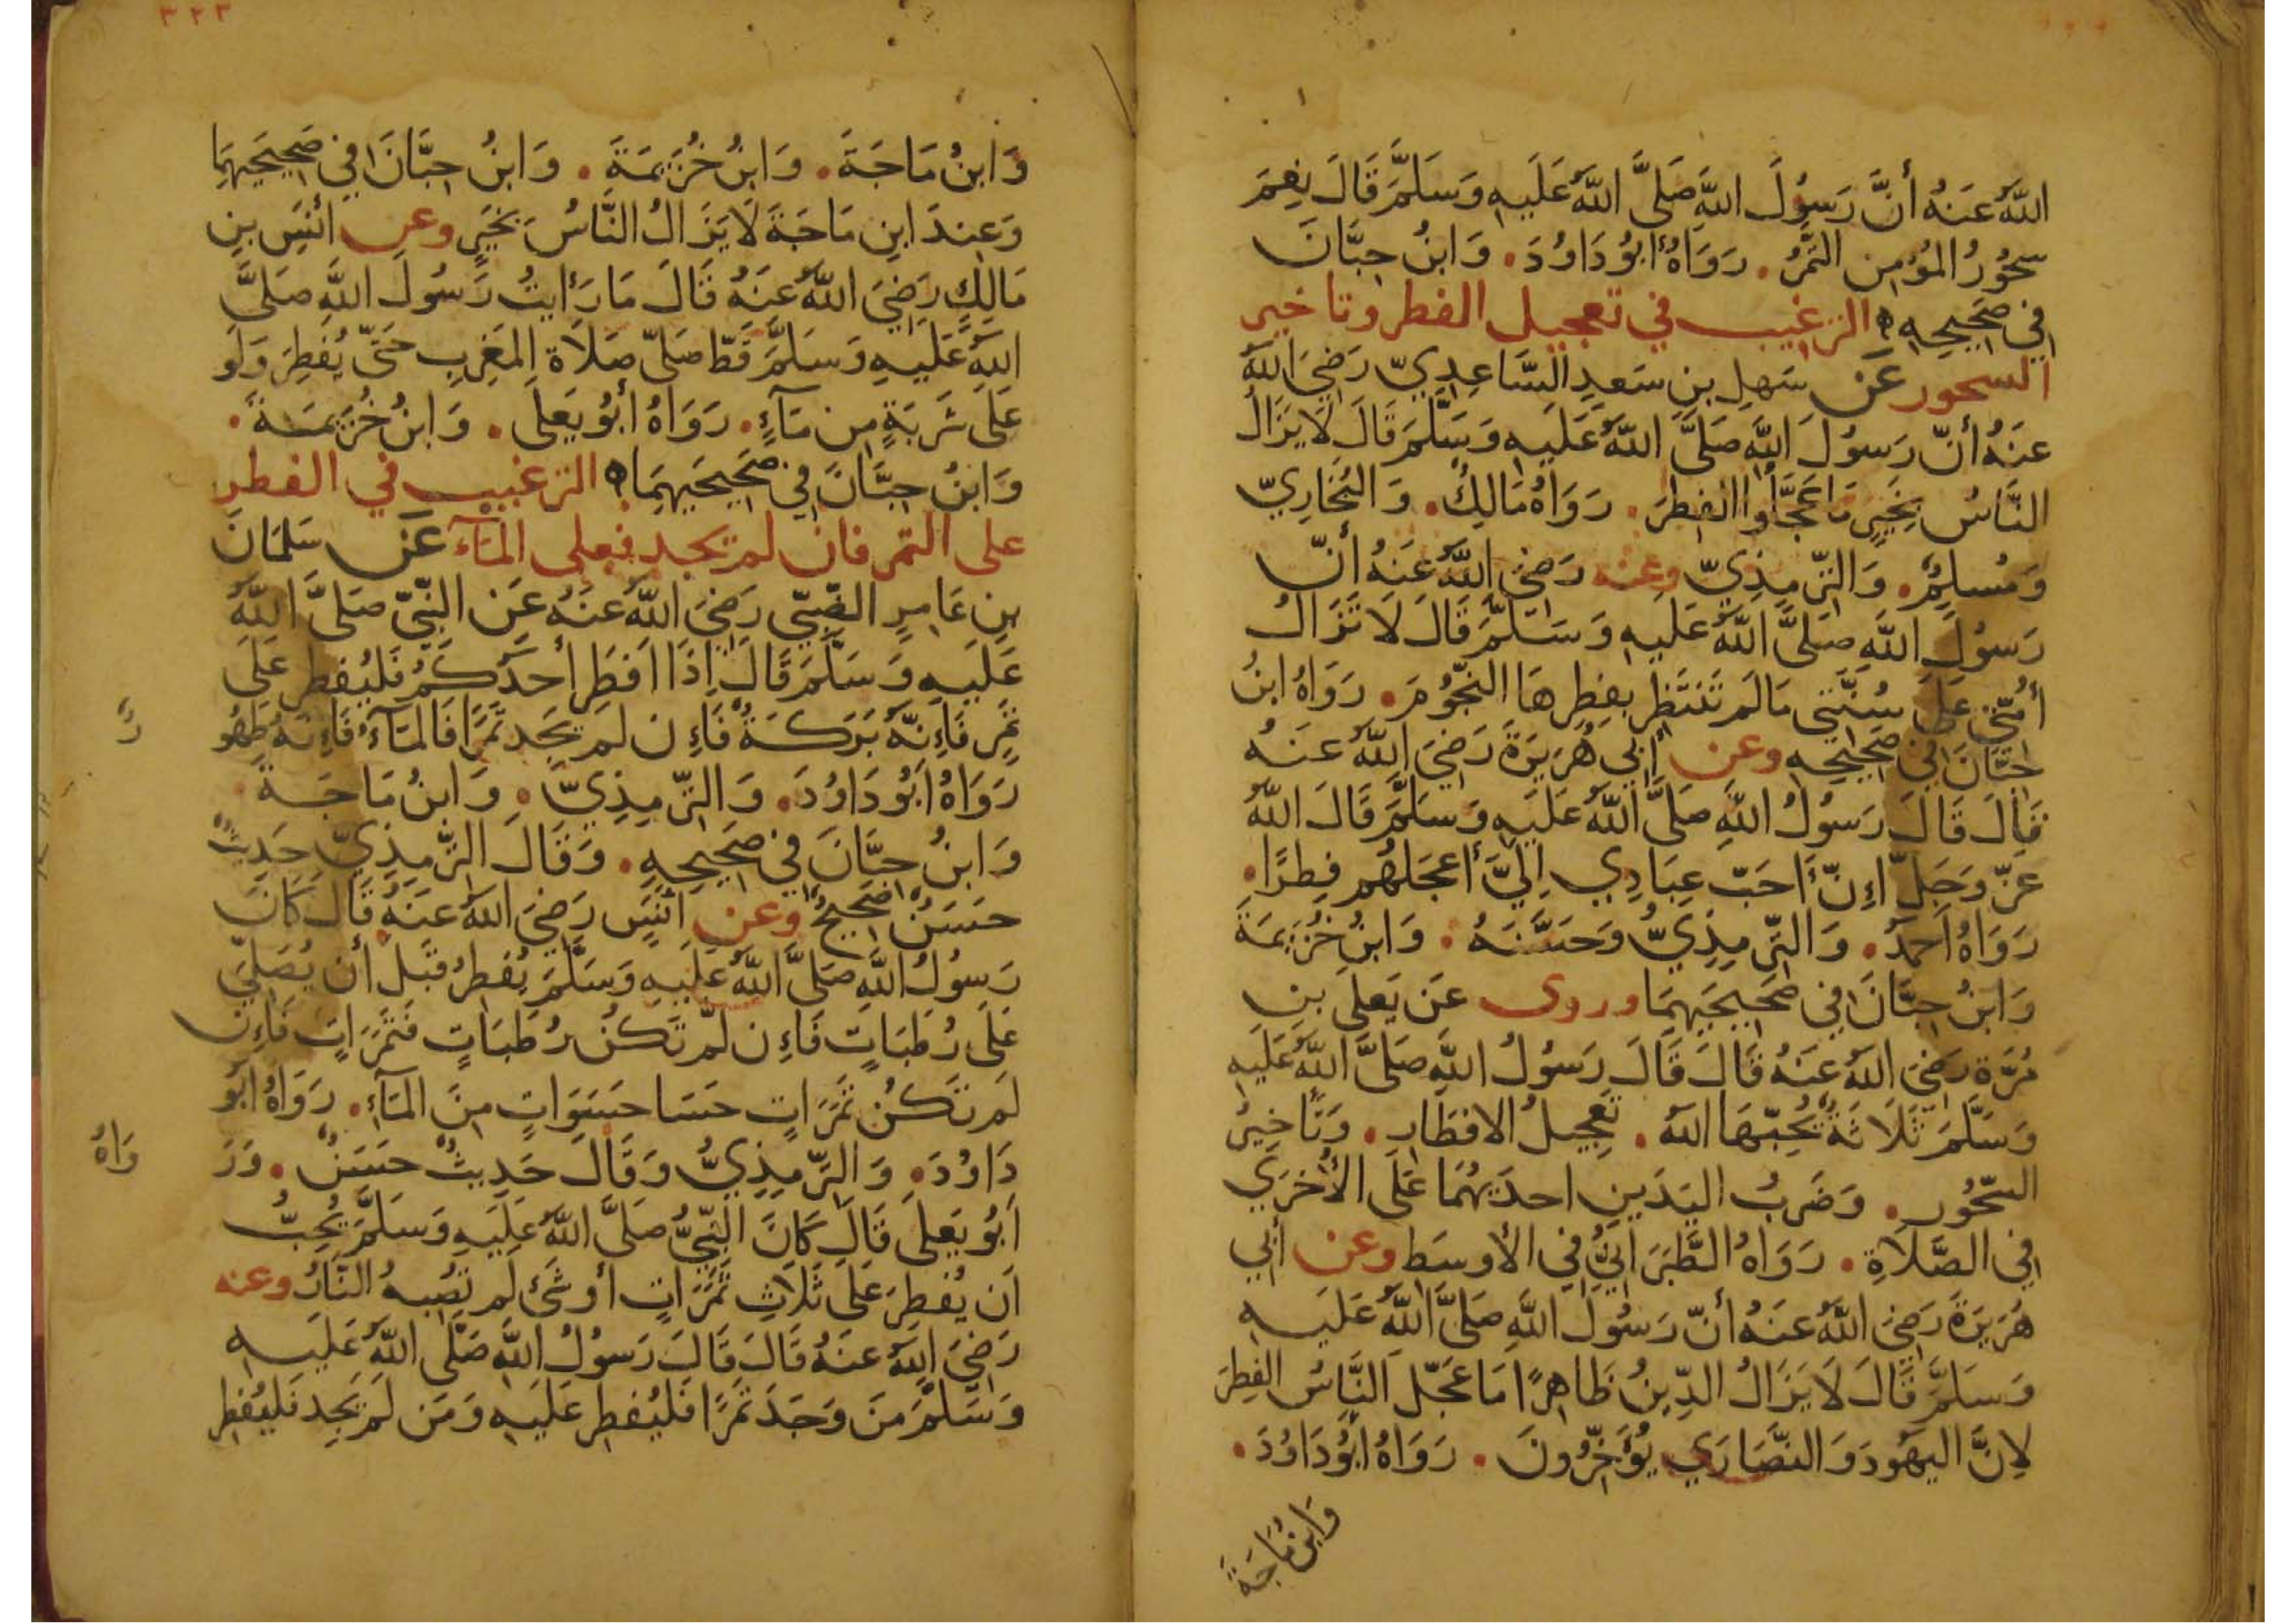 اللّهُ عَنهُ أنَّ رَسُولَ اللّهِ صَلَّى اللّهُ عَلَيهِ وَسَلَّمَ قَالَ نِعمَ
سحُورُ المُؤمِنِ التَّمرُ . رَوَاهُ ابُو دَاوُدَ . وَابنُ حِبَّانَ
فِي صَحِيحِهِ ه الترغيب في تعجيل الفطر وتاخير
السحور عَن سَهلِ بنِ سَعدٍ السَّاعِدِيّ رَضِيَ اللّهُ
عَنهُ أنّ رَسُولَ اللّهِ صَلَّى اللّهُ عَلَيهِ وَسَلَّمَ قَالَ لَا يَزَالُ
النَّاسُ بِخَيرٍ مَا عَجَّلُوا الفِطرَ . رَوَاهُ مَالِكٌ . وَالبُخَارِيّ
وَمُسلِمٌ . وَالتّرمِذِيّ وعنه رَضِيَ اللّهُ عَنهُ أنّ
رَسُولَ اللّهِ صَلَّى اللّهُ عَلَيهِ وَسَلَّمَ قَالَ لَا تَزَالُ
أمّتِي عَلَى سُنَّتِي مَا لَم تَنتَظِر بِفِطرِهَا النّجُومَ . رَوَاهُ ابنُ
حِبَّانَ فِي صَحِيحِهِ وعن أبِي هُرَيرَةَ رَضِيَ اللّهُ عَنهُ
قَالَ قَالَ رَسُولُ اللّهِ صَلَّى اللّهُ عَلَيهِ وَسَلَّمَ قَالَ اللّهُ
عَزّ وَجَلّ إنّ أحَبّ عِبَادِي إليَّ أعجَلُهُم فِطرًا .
رَوَاهُ أحمَدُ . وَالتِّرمِذِيُّ وَحَسَّنَهُ . وَابنُ خُزَيمَةَ
وَابنُ حِبَّانَ فِي صَحِيحَيهِمَا وروى عَن يَعلَى بنِ
مُرَّةَ رَضِيَ اللّهُ عَنهُ قَالَ قَالَ رَسُولُ اللّهِ صَلَّى اللّهُ عَلَيهِ
وَسَلَّمَ ثَلَاثَةٌ يُحِبّهَا اللّهُ . تَعجِيلُ الافطَارِ . وَتَاخِيرُ
السّحُورِ . وَضَربُ اليَدَينِ احدَيهُمَا عَلَى الأُخرَي
فِي الصَّلَاةِ . رَوَاهُ الطَّبَرَانِيُّ فِي الأوسَطِ وعن أبِي
هُرَيرَةَ رَضِيَ اللّهُ عَنهُ أنّ رَسُولَ اللّهِ صَلَّى اللّهُ عَلَيهِ
وَسَلَّمَ قَالَ لَا يَزَالُ الدِّينُ ظَاهِرًا مَا عَجّلَ النَّاسُ الفِطرَ
لِانَّ اليَهُودَ وَالنّصَارَي يُؤَخِّرُونَ . رَوَاهُ ابُو دَاوُدَ .
وَابنُ مَاجَةَ
٣٢٣
وَابنُ مَاجَةَ . وَابنُ خُزَيمَةَ . وَابنُ حِبَّانَ فِي صَحِيحَيهِمَا
وَعِندَ ابنِ مَاجَةَ لَا يَزَالُ النَّاسُ بِخَيرٍ وعن أنَسِ بنِ
مَالِكٍ رَضِيَ اللّهُ عَنهُ قَالَ مَا رَأيتُ رَسُولَ اللّهِ صَلَّى
اللّهُ عَلَيهِ وَسَلَّمَ قَطّ صَلّى صَلَاةَ المَغرِبِ حَتّى يُفطِرَ وَلَو
عَلَى شَربَةٍ مِن مَآءٍ . رَوَاهُ أبُو يَعلَى . وَابنُ خُزَيمَةَ .
وَابنُ حِبَّانَ فِي صَحِيحَيهِمَا ه الترغيب في الفطر
على التمر فان لم يجد فعلى المآء عَن سَلمَانَ
بنِ عَامِرٍ الضَّبِّيّ رَضِيَ اللّهُ عَنهُ عَنِ النّبِيّ صَلَّى اللّهُ
عَلَيهِ وَسَلَّمَ قَالَ إذَا افطَرَ أحَدُكُم فَليُفطِر عَلَى
تَمرٍ فَإنّهُ بَرَكَةٌ فَإن لَم يَجِد تَمرًا فَالمَآءُ فَإنّهُ طَهُو
رٌ
رَوَاهُ ابُو دَاوُدَ . وَالتّرمِذِيّ . وَابنُ مَاجَةَ .
وَابنُ حِبَّانَ فِي صَحِيحِهِ . وَقَالَ التّرمِذِيّ حَدِيثٌ
حَسَنٌ صَحِيحٌ وعن أنَسٍ رَضِيَ اللّهُ عَنهُ قَالَ كَانَ
رَسُولُ اللّهِ صَلَّى اللّهُ عَلَيهِ وَسَلَّمَ يُفطِرُ قَبلَ أن يُصَلِّيَ
عَلَى رُطَبَاتٍ فَإن لَم تَكُن رُطَبَاتٍ فَتَمَرَاتٍ فَإن
لَم تَكُن تَمَرَاتٍ حَسَا حَسَوَاتٍ مِنَ المَآءِ . رَوَاهُ ابُو
دَاوُدَ . وَالتِّرمِذِيُّ وَقَالَ حَدِيثٌ حَسَنٌ . وَرَ
وَاهُ
ابُو يَعلَى قَالَ كَانَ النّبِيُّ صَلَّى اللّهُ عَلَيهِ وَسَلَّمَ يُحِبُّ
ان يُفطِرَ عَلَى ثَلَاثِ تَمَرَاتٍ أو شَيءٍ لَم تُصِبهُ النَّارُ وعنه
رَضِيَ اللّهُ عَنهُ قَالَ قَالَ رَسُولُ اللّهِ صَلّى اللّهُ عَلَيهِ
وَسَلَّمَ مَن وَجَدَ تَمرًا فَليُفطِر عَلَيهِ وَمَن لَم يَجِد فَليُفطِر